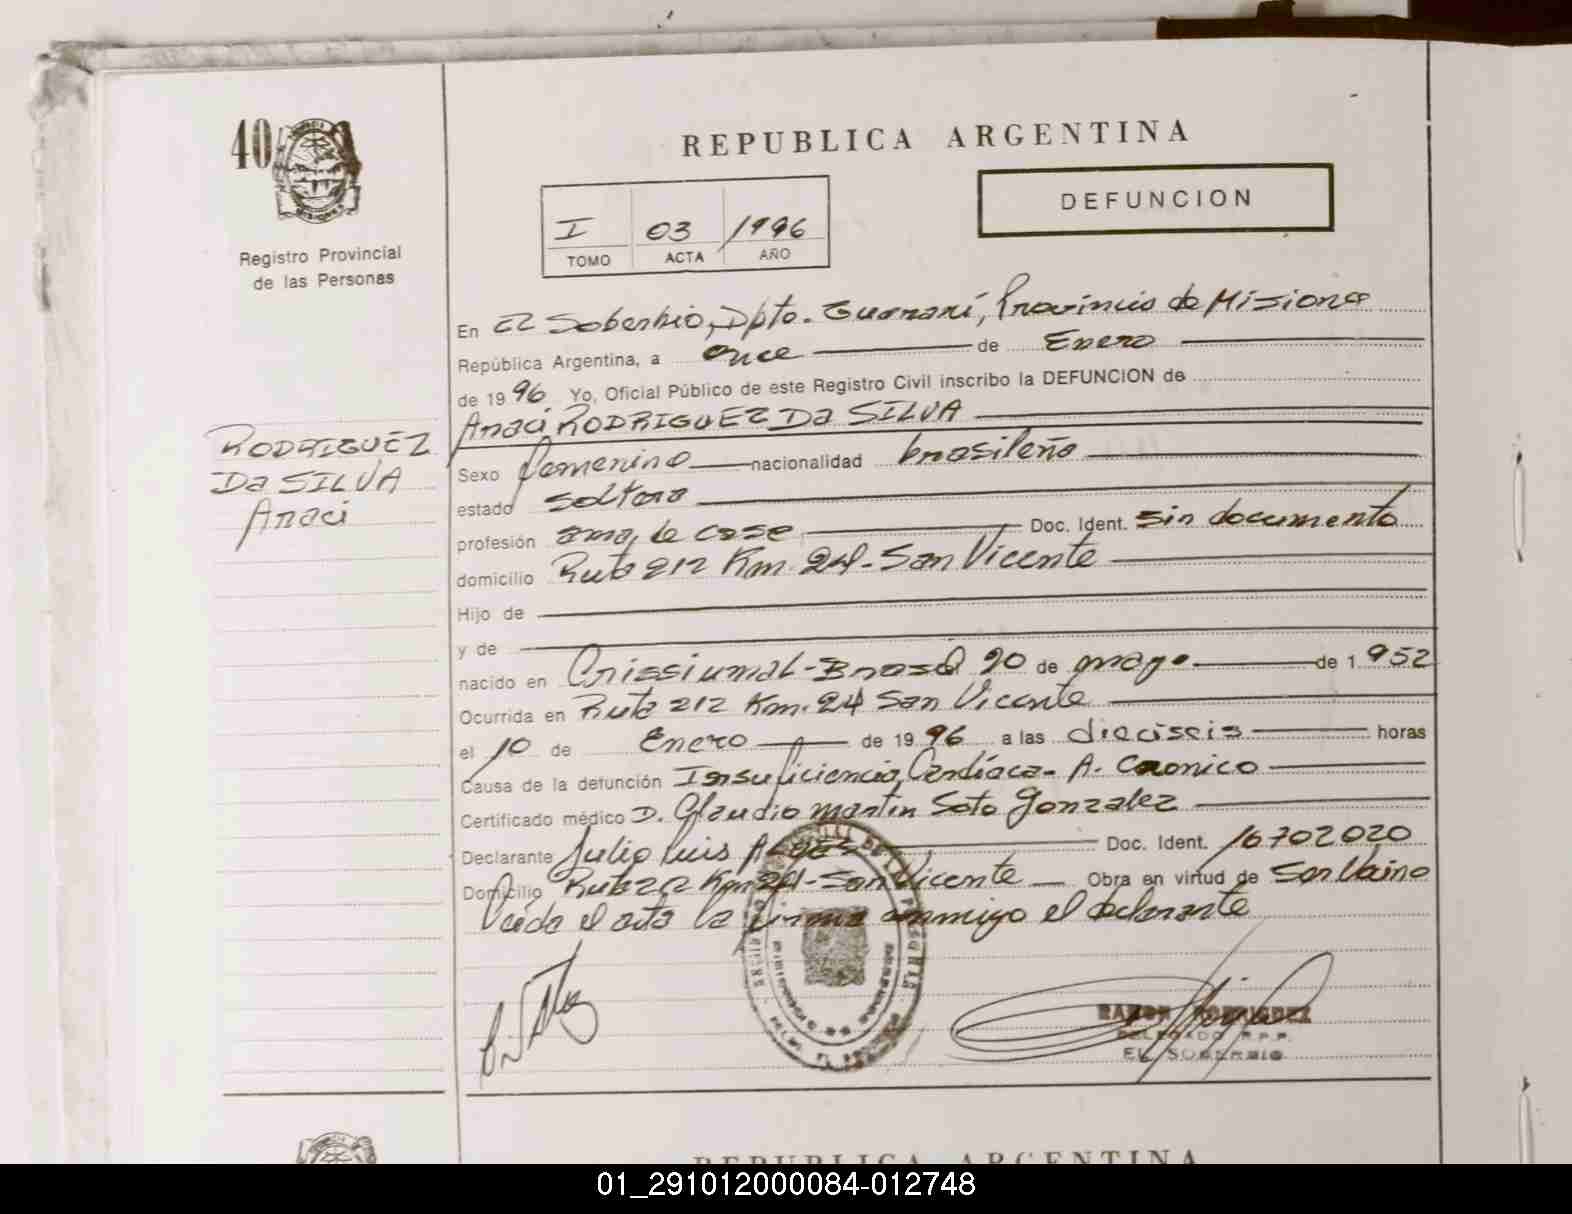 40
REPUBLICA ARGENTINA
DEFUNCION
I 03 /1996
TOMO ACTA AÑO
Registro Provincial
de las Personas
En El Soberbio, Dpto. Guaraní, Provincia de Misiones
República Argentina, a once de Enero
de 1996 Yo, Oficial Público de este Registro Civil inscribo la DEFUNCION de
Anaci RODRIGUEZ Da SILVA
RODRIGUEZ
Da SILVA
Anaci
Sexo femenino nacionalidad brasileña
estado soltera
profesión ama de casa Doc. Ident. sin documento
domicilio Ruta 212 Km. 24 - San Vicente
Hijo de
y de
nacido en Crissiumal - Brasil 20 de mayo de 1952
Ocurrida en Ruta 212 Km. 24 San Vicente
el 10 de Enero de 1996 a las dieciseis horas
Causa de la defunción Insuficiencia Cardíaca - A. Cronico
Certificado médico D. Claudio Martin Soto Gonzalez
Declarante Julio Luis Doc. Ident. 16702020
Domicilio Ruta 212 Km 24 - San Vicente Obra en virtud de ser
Leida el acta la firma conmigo el declarante
RAMON RODRIGUEZ
DELEGADO R.P.P.
EL SOBERBIO
REPUBLICA ARGENTINA
01_291012000084-012748